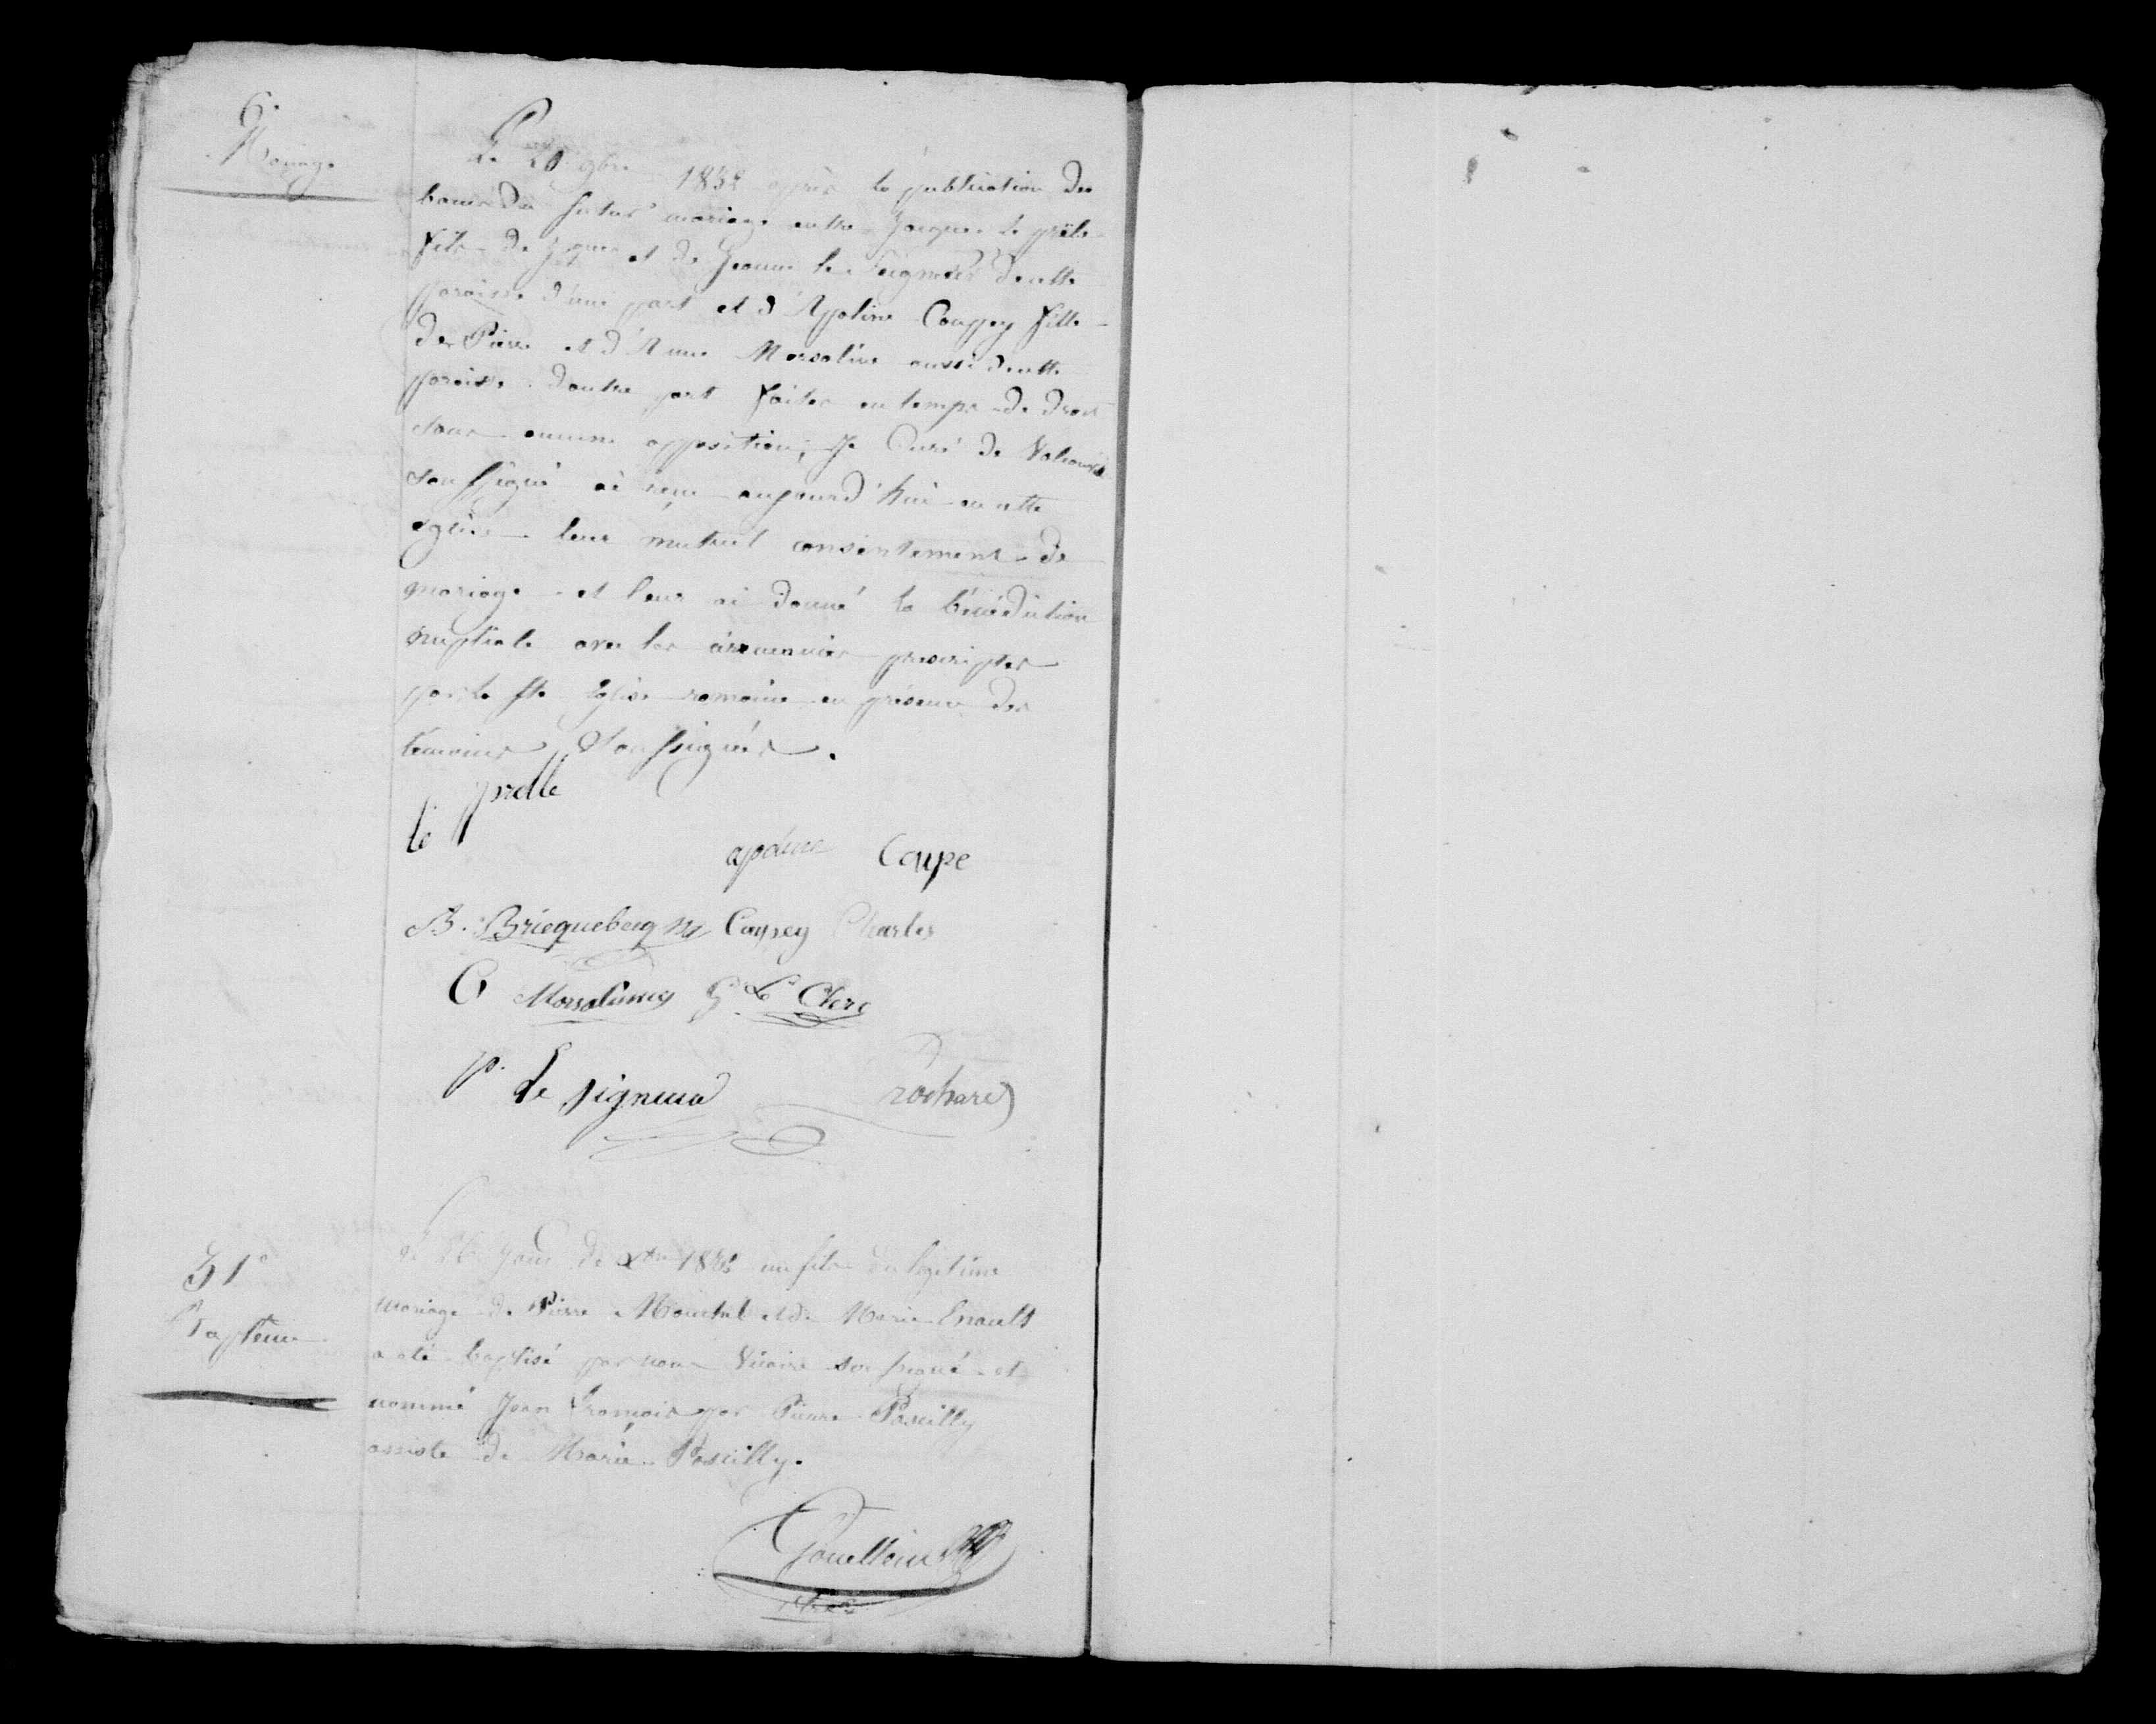 6.
Mariage
Le 20 9bre 1832 après la publication des
bans du futur mariage entre Jacques le prêle
fils de Jques et de Jeanne le Seigneur de cette
paroisse d'une part et d'Apoline Couppey fille
de Pierre et d'Anne Morsaline aussi de cette
paroisse d'autre part faites en temps de droit
sans aucune opposition; Je Curé de
soussigné ai reçu aujourd'hui en cette
église leur mutuel consentement de
mariage et leur ai donné la bénédiction
nuptiale avec les cérémonies prescriptes
par la Ste Eglise romaine en présence des
témoins soussignés.
le prelle
apoline Coupe
B. Bricquebecq Couppey Charles
C Morsalines G. Le Clerc
p. le signeur rochard
31e
Baptême
Le jour de Xbre 1832 un fils du légitime
mariage de Pierre Mouchel et de Marie Enault
a été baptisé par nous Vicaire soussigné et
nommé Jean françois par Pierre Poscilly
assisté de Marie Poscilly.